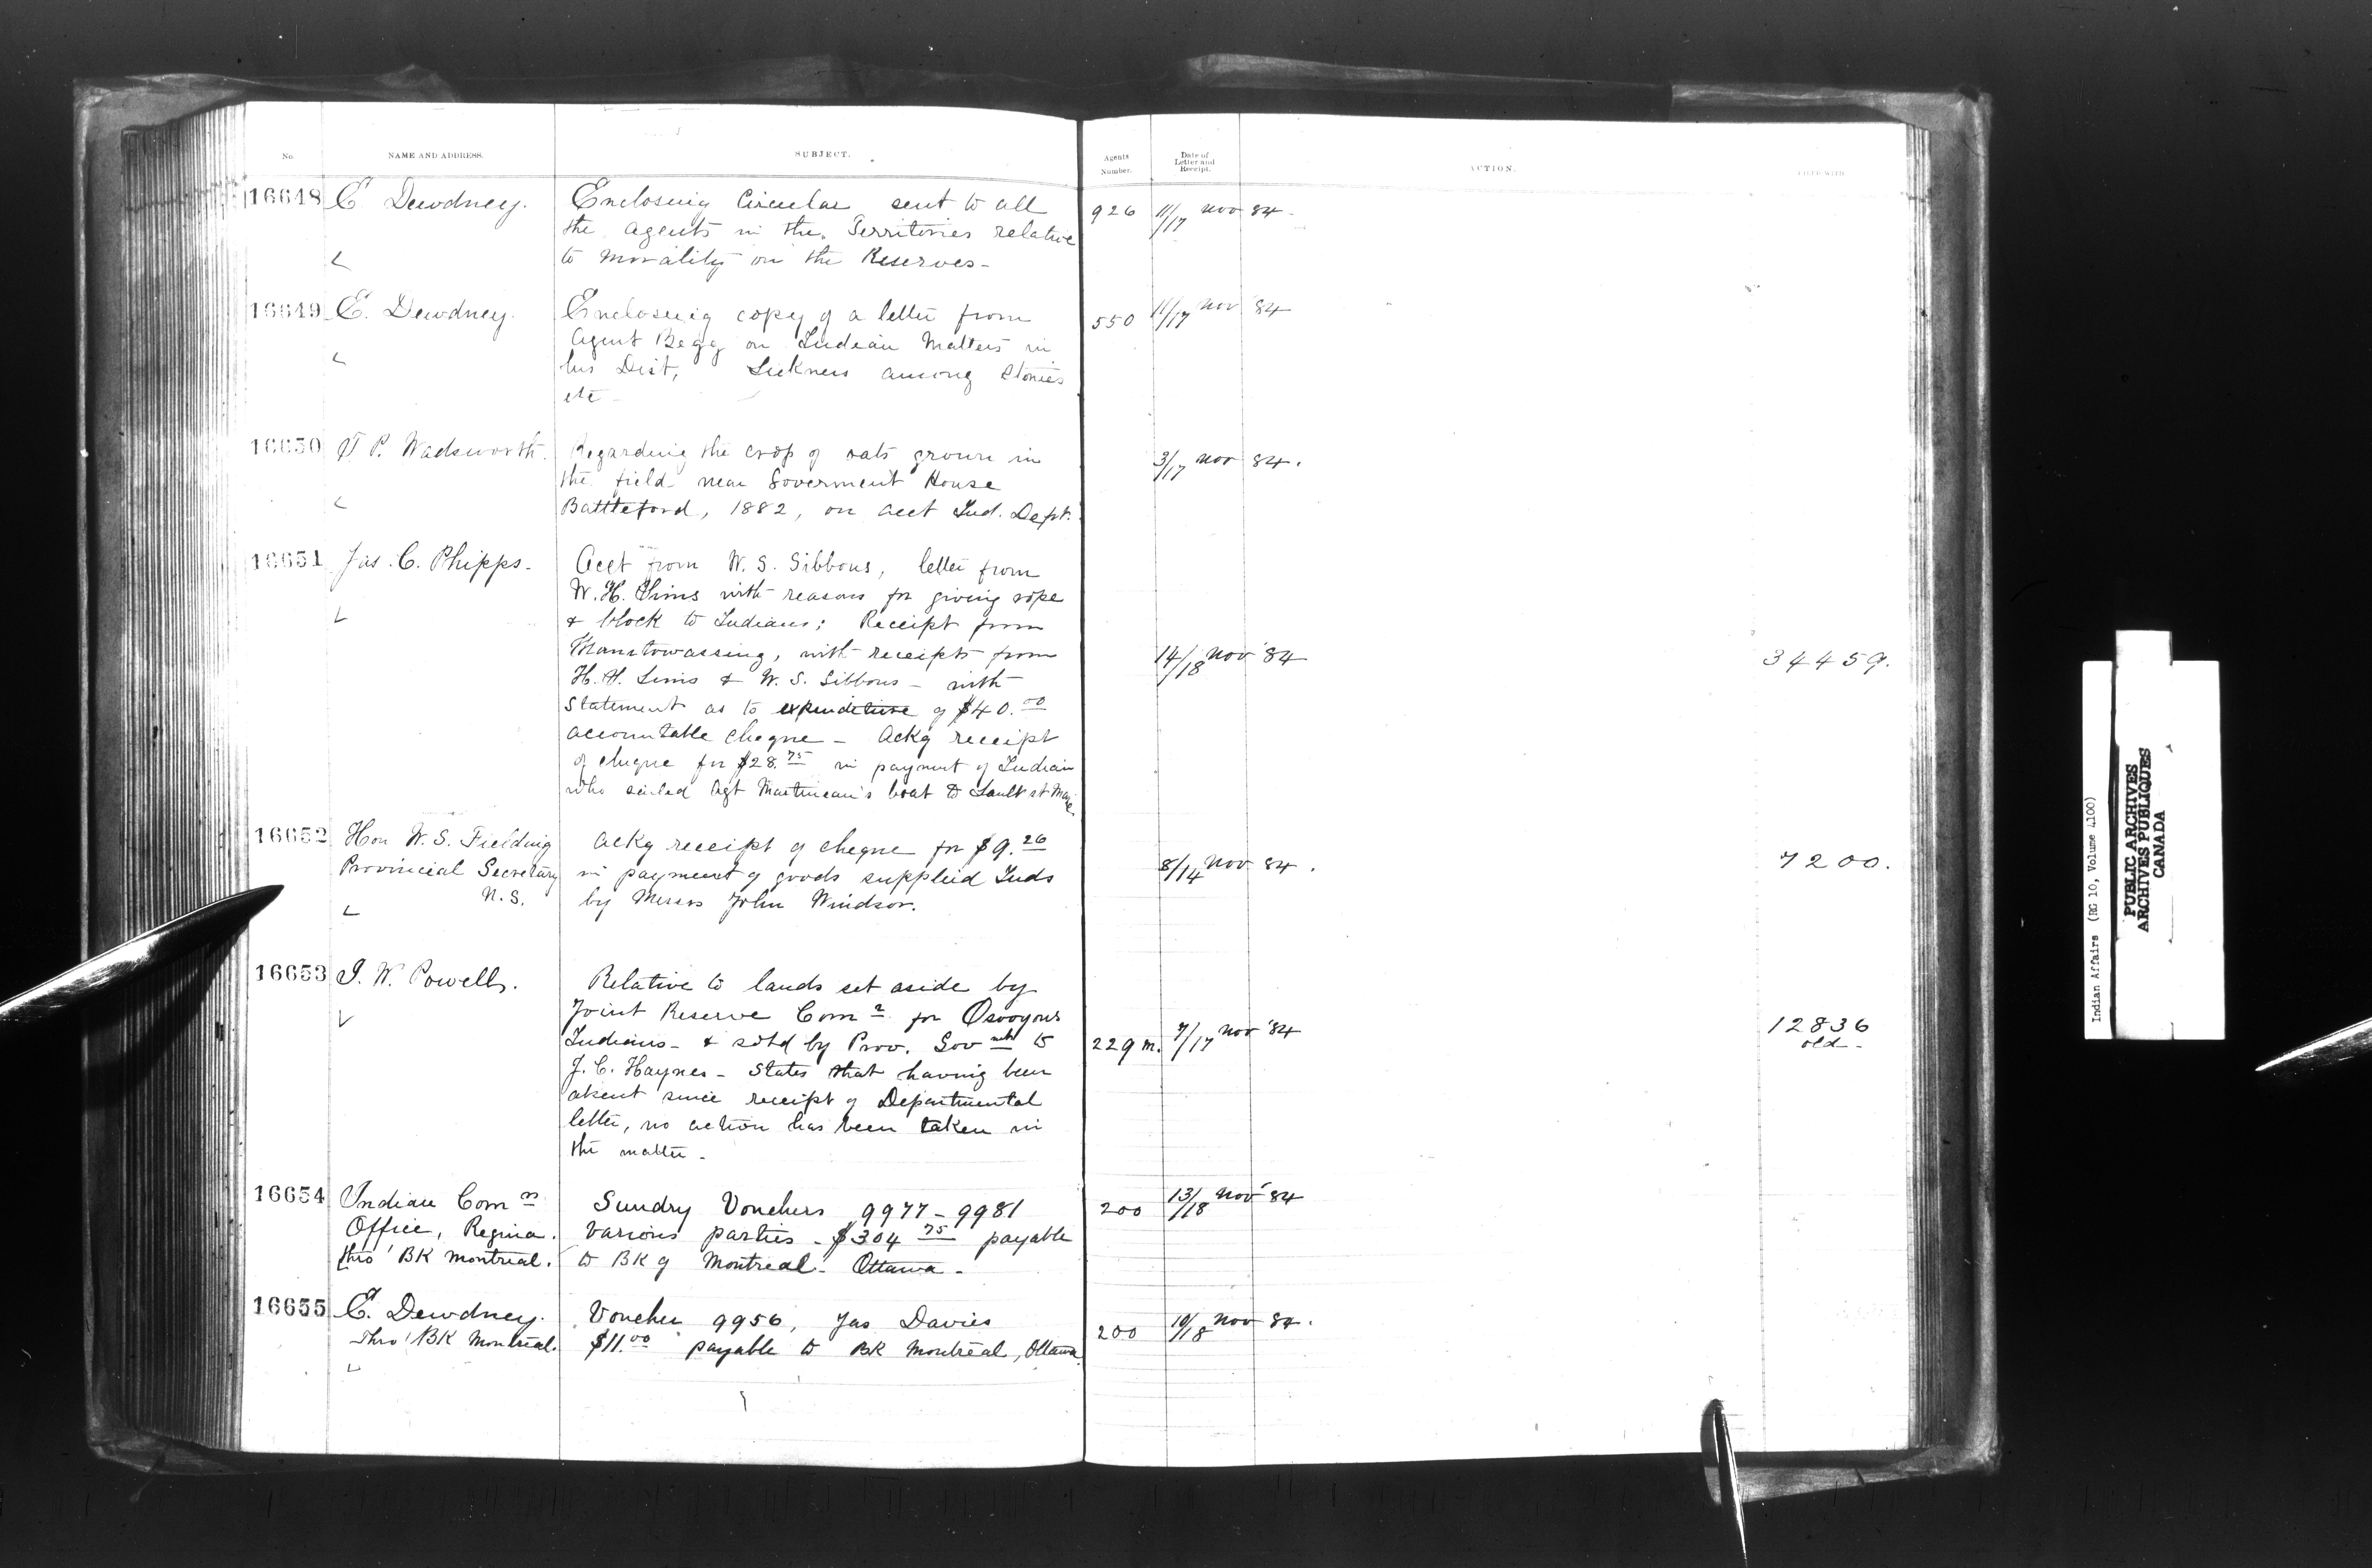 No. NAME AND ADDRESS. SUBJECT. Agents Number. Date of Letter and Receipt. ACTION. FILED WITH
16648 E Dewdney. Enclosing Circular sent to all 926 11/17 Nov 84 -
the agents in the Territories relative
to morality on the Reserves -
16649 E. Dewdney. Enclosing copy of a letter from 550 11/17 Nov 84
Agent Begg on Indian Matters in
his Dist, Sickness among Stonies
etc -
16650 T P. Wadsworth. Regarding the crop of oats grown in 3/17 Nov 84.
the field near Goverment House
Battleford, 1882, on acct Ind. Dept.
16651 Jas. C. Phipps - Acct from W. S. Gibbons, letter from
W. H. Sims with reasons for giving rope
& block to Indians; Receipt from
Manitowassing, with receipts from 14/18 Nov '84 34459.
H. H. Sims & W. S. Gibbons - with
Statement as to expenditure of $40.00
accountable cheque - Ackg receipt
of cheque for $28.75 in payment of Indian
who sailed Agt Martineau's boat to Sault St Marie
16652 Hon W. S. Fielding Ackg receipt of cheque for $9.26
Provincial Secretary in payment of goods supplied Inds 8/14 Nov 84. 7200.
N. S. by Messrs John Windsor.
16653 I. W. Powell. Relative to lands set aside by
Joint Reserve Comn for Osooyous
Indians - & sold by Prov. Govmt to 229 m. 7/17 Nov '84 12836
old -
J. C. Haynes - States that having been
absent since receipt of Departmental
letter, no action has been taken in
the matter -
16654 Indian Comn Sundry Vouchers 9977 - 9981 200 13/18 Nov '84
Office, Regina. Various parties - $304 75 payable
thro' BK Montreal. to BK of Montreal - Ottawa -
16655 E. Dewdney. Voucher 9956, Jas Davies 200 10/18 Nov 84.
Thro' BK Montreal. $11.00 payable to BK Montreal, Ottawa
Indian Affairs (RG 10, Volume 4100)
PUBLIC ARCHIVES
ARCHIVES PUBLIQUES
CANADA